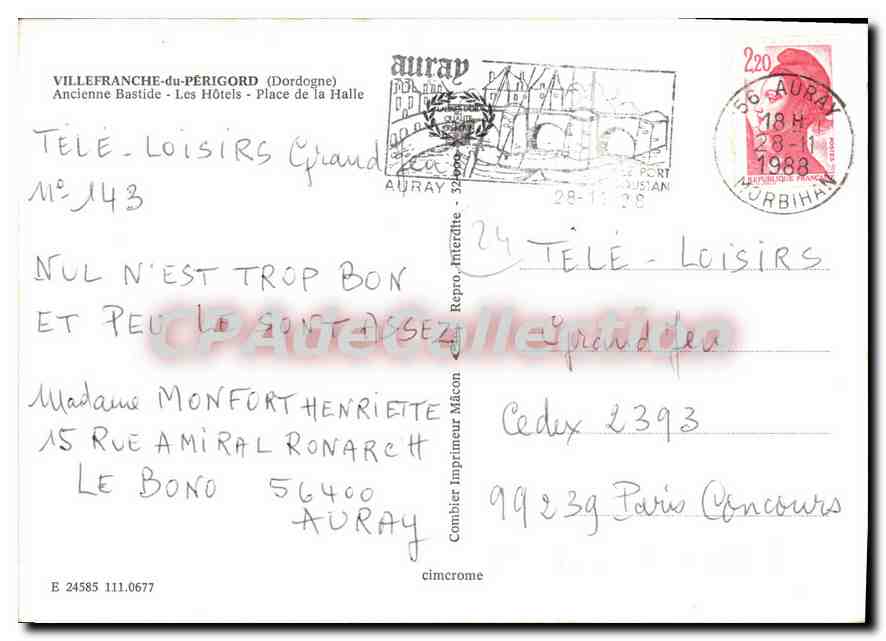 VILLEFRANCHE-du-PÉRIGORD (Dordogne)
Ancienne Bastide - Les Hôtels - Place de la Halle
TÉLÉ-LOISIRS Grand Jeu
N° 143
NUL N'EST TROP BON
ET PEU LE SONT ASSEZ
Madame MONFORT HENRIETTE
15 RUE AMIRAL RONARCH
LE BONO 56400
AURAY
E 24585 111.0677
auray
AURAY
LE PORT
28-11
2,20
RÉPUBLIQUE FRANÇAISE
56 AURAY
18 H
28-11
1988
MORBIHAN
Combier Imprimeur Mâcon
Repro. Interdite - 32.000
24
TÉLÉ-LOISIRS
Grand Jeu
Cedex 2393
99239 Paris Concours
cimcrome
CPAdeCollection